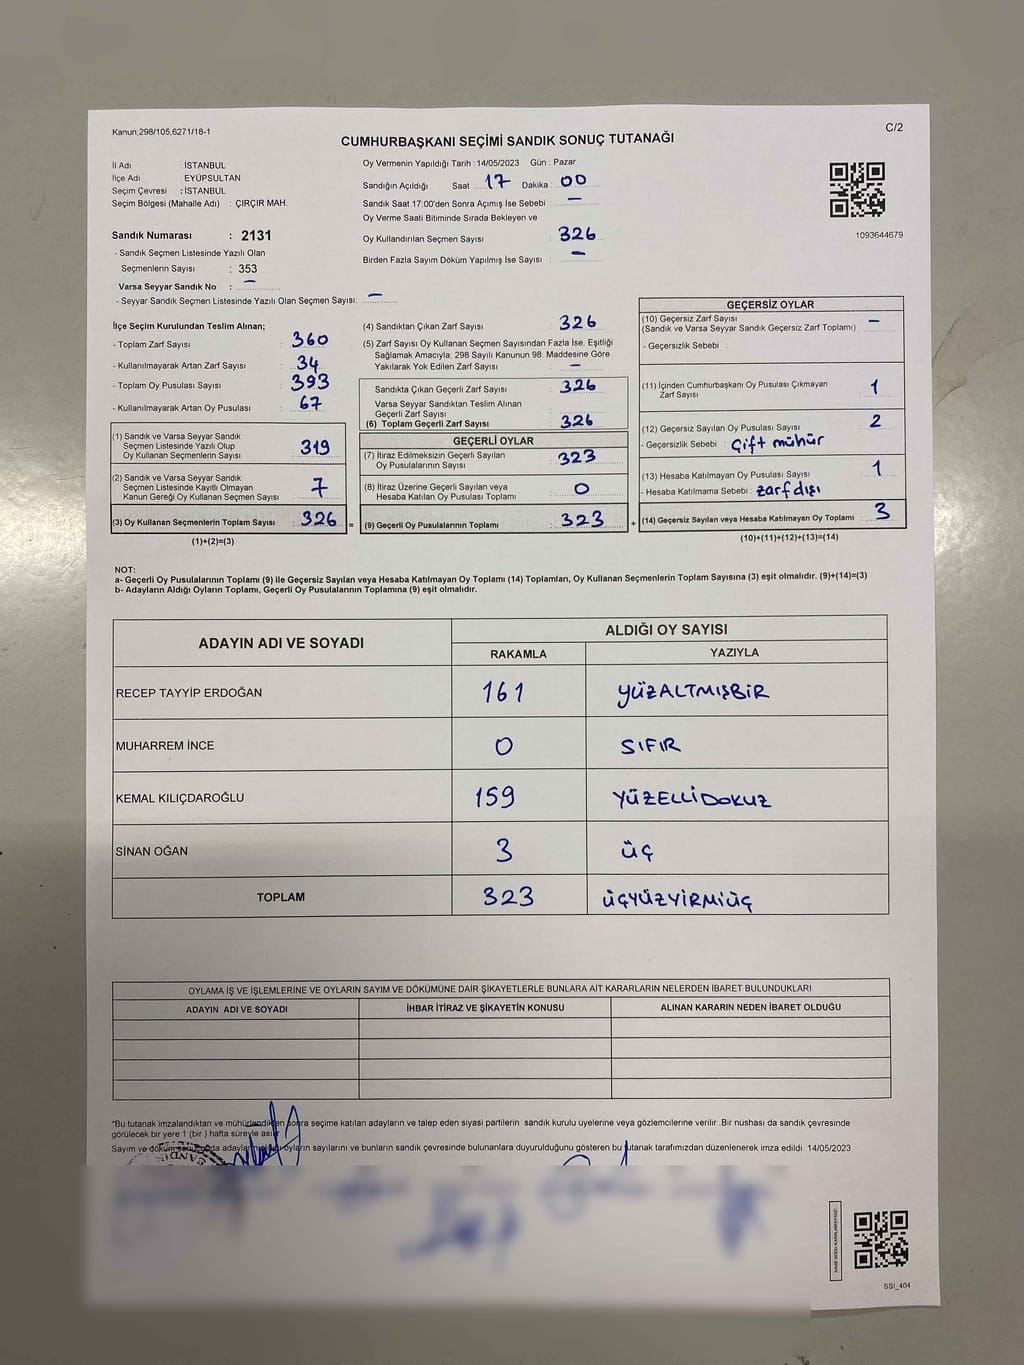 Kanun,298/105,6271/18-1
C/2
CUMHURBAŞKANI SEÇİMİ SANDIK SONUÇ TUTANAĞI
İl Adı : İSTANBUL
İlçe Adı : EYÜPSULTAN
Seçim Çevresi : İSTANBUL
Seçim Bölgesi (Mahalle Adı) : ÇIRÇIR MAH.
Sandık Numarası : 2131
- Sandık Seçmen Listesinde Yazılı Olan
Seçmenlerin Sayısı : 353
Varsa Seyyar Sandık No : –
- Seyyar Sandık Seçmen Listesinde Yazılı Olan Seçmen Sayısı: –
Oy Vermenin Yapıldığı Tarih : 14/05/2023 Gün : Pazar
Sandığın Açıldığı Saat : 17 Dakika : 00
Sandık Saat 17:00'den Sonra Açımış İse Sebebi : –
Oy Verme Saati Bitiminde Sırada Bekleyen ve
Oy Kullandırılan Seçmen Sayısı : 326
Birden Fazla Sayım Döküm Yapılmış İse Sayısı : –
1093644679
İlçe Seçim Kurulundan Teslim Alınan;
- Toplam Zarf Sayısı : 360
- Kullanılmayarak Artan Zarf Sayısı : 34
- Toplam Oy Pusulası Sayısı : 393
- Kullanılmayarak Artan Oy Pusulası : 67
(1) Sandık ve Varsa Seyyar Sandık
Seçmen Listesinde Yazılı Olup
Oy Kullanan Seçmenlerin Sayısı : 319
(2) Sandık ve Varsa Seyyar Sandık
Seçmen Listesinde Kayıtlı Olmayan
Kanun Gereği Oy Kullanan Seçmen Sayısı : 7
(3) Oy Kullanan Seçmenlerin Toplam Sayısı : 326 =
(1)+(2)=(3)
(4) Sandıktan Çıkan Zarf Sayısı : 326
(5) Zarf Sayısı Oy Kullanan Seçmen Sayısından Fazla İse, Eşitliği
Sağlamak Amacıyla, 298 Sayılı Kanunun 98. Maddesine Göre
Yakılarak Yok Edilen Zarf Sayısı : –
Sandıkta Çıkan Geçerli Zarf Sayısı : 326
Varsa Seyyar Sandıktan Teslim Alınan
Geçerli Zarf Sayısı
(6) Toplam Geçerli Zarf Sayısı : 326
GEÇERLİ OYLAR
(7) İtiraz Edilmeksizin Geçerli Sayılan
Oy Pusulalarının Sayısı : 323
(8) İtiraz Üzerine Geçerli Sayılan veya
Hesaba Katılan Oy Pusulası Toplamı : 0
(9) Geçerli Oy Pusulalarının Toplamı : 323 +
GEÇERSİZ OYLAR
(10) Geçersiz Zarf Sayısı
(Sandık ve Varsa Seyyar Sandık Geçersiz Zarf Toplamı) : –
- Geçersizlik Sebebi :
(11) İçinden Cumhurbaşkanı Oy Pusulası Çıkmayan
Zarf Sayısı : 1
(12) Geçersiz Sayılan Oy Pusulası Sayısı : 2
- Geçersizlik Sebebi : Çift mühür
(13) Hesaba Katılmayan Oy Pusulası Sayısı : 1
- Hesaba Katılmama Sebebi : zarf dışı
(14) Geçersiz Sayılan veya Hesaba Katılmayan Oy Toplamı : 3
(10)+(11)+(12)+(13)=(14)
NOT:
a- Geçerli Oy Pusulalarının Toplamı (9) ile Geçersiz Sayılan veya Hesaba Katılmayan Oy Toplamı (14) Toplamları, Oy Kullanan Seçmenlerin Toplam Sayısına (3) eşit olmalıdır. (9)+(14)=(3)
b- Adayların Aldığı Oyların Toplamı, Geçerli Oy Pusulalarının Toplamına (9) eşit olmalıdır.
ADAYIN ADI VE SOYADI
ALDIĞI OY SAYISI
RAKAMLA YAZIYLA
RECEP TAYYİP ERDOĞAN 161 YÜZALTMIŞBİR
MUHARREM İNCE 0 SIFIR
KEMAL KILIÇDAROĞLU 159 YÜZELLİDOKUZ
SİNAN OĞAN 3 ÜÇ
TOPLAM 323 ÜÇYÜZYİRMİÜÇ
OYLAMA İŞ VE İŞLEMLERİNE VE OYLARIN SAYIM VE DÖKÜMÜNE DAİR ŞİKAYETLERLE BUNLARA AİT KARARLARIN NELERDEN İBARET BULUNDUKLARI
ADAYIN ADI VE SOYADI İHBAR İTİRAZ VE ŞİKAYETİN KONUSU ALINAN KARARIN NEDEN İBARET OLDUĞU
*Bu tutanak imzalandıktan ve mühürlendikten sonra seçime katılan adayların ve talep eden siyasi partilerin sandık kurulu üyelerine veya gözlemcilerine verilir .Bir nüshası da sandık çevresinde
görülecek bir yere 1 (bir ) hafta süreyle asılır
Sayım ve döküm sonucunda adayların oyların sayılarını ve bunların sandık çevresinde bulunanlara duyurulduğunu gösteren bu tutanak tarafımızdan düzenlenerek imza edildi 14/05/2023
SSI_404